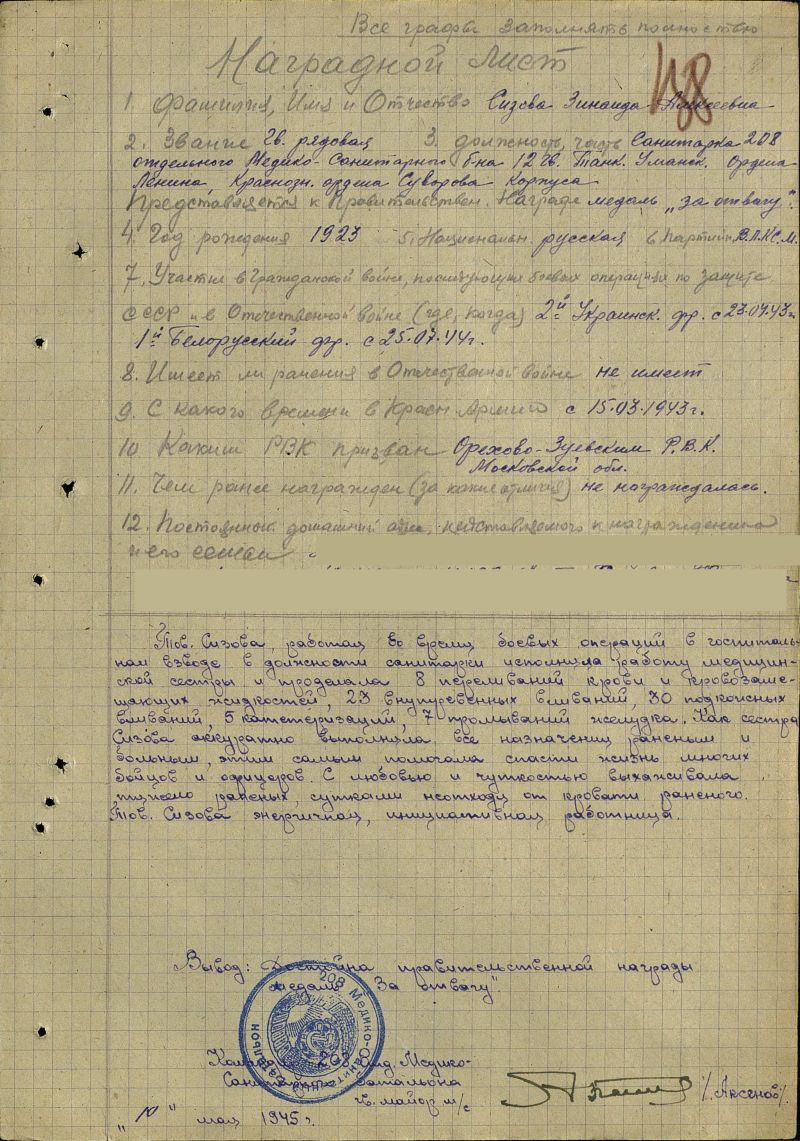 Все графы заполнять полностью
Наградной лист
148
1. Фамилия, Имя и Отчество Сизова Зинаида Алексеевна
2. Звание Гв. рядовая 3. должность, часть Санитарка 208
отдельного Медико-Санитарного б-на 12 Гв. Танк. Уманск. Ордена
Ленина, Краснозн. ордена Суворова Корпуса
Представляется к Правительствен. Награде медаль "за отвагу".
4. Год рождения 1923 5. Национальн. русская 6 Партийн. В.Л.К.С.М.
7. Участие в Гражданской войне, последующих боевых операциях по защите
СССР и в Отечественной войне (где, когда) 2й Украинск. фр. с 23.07.43г.
1й Белорусский фр. с 25.07.44г.
8. Имеет ли ранения в Отечественной войне не имеет
9. С какого времени в Красн. Армии с 15.03.1943г.
10 Каким РВК призван Орехово-Зуевским Р.В.К.
Московской обл.
11. Чем ранее награжден (за какие отличия) не награждалась.
12. Постоянный домашний адрес, представляемого к награждению
и его семьи
Тов. Сизова, работая во время боевых операций в госпиталь-
ном взводе в должности санитарки исполняла работу медицин-
ской сестры и проделала 8 переливаний крови и кровозаме-
щающих жидкостей, 23 внутревенных вливаний, 30 подкожных
вливаний, 5 катетеризаций, 7 промываний желудка. Как сестра
Сизова аккуратно выполняла все назначения раненым и
больным, этим самым помогала спасти жизнь многих
бойцов и офицеров. С любовью и чуткостью выхаживала
тяжело раненых, сутками неотходя от кровати раненого.
Тов. Сизова энергичная, инициативная работница.
Вывод: Достойна правительственной награды
медаль "За отвагу".
208 Медико-Санитарный батальон
Командир 208 отд. Медико-
Санитарного батальона
гв. майор м/с /Аксенов/
мая 1945г.